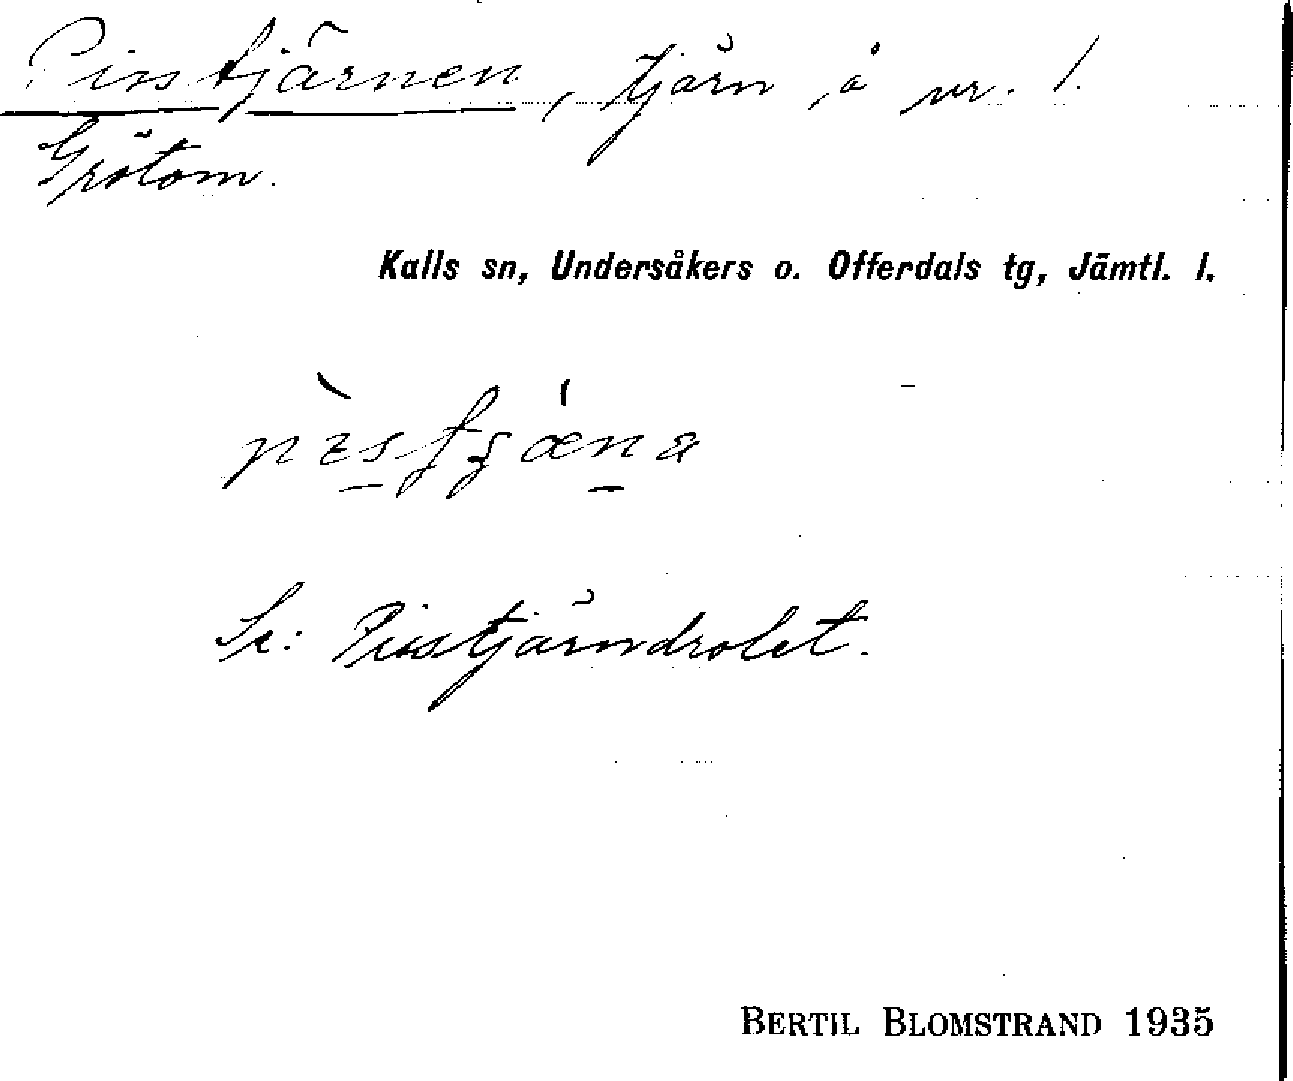 Pisstjärnen, tjärn å nr. 1.
Grötom.
Kalls sn, Undersåkers o. Offerdals tg, Jämtl. l.
Se: Pisstjärndrolet.
BERTIL BLOMSTRAND 1935